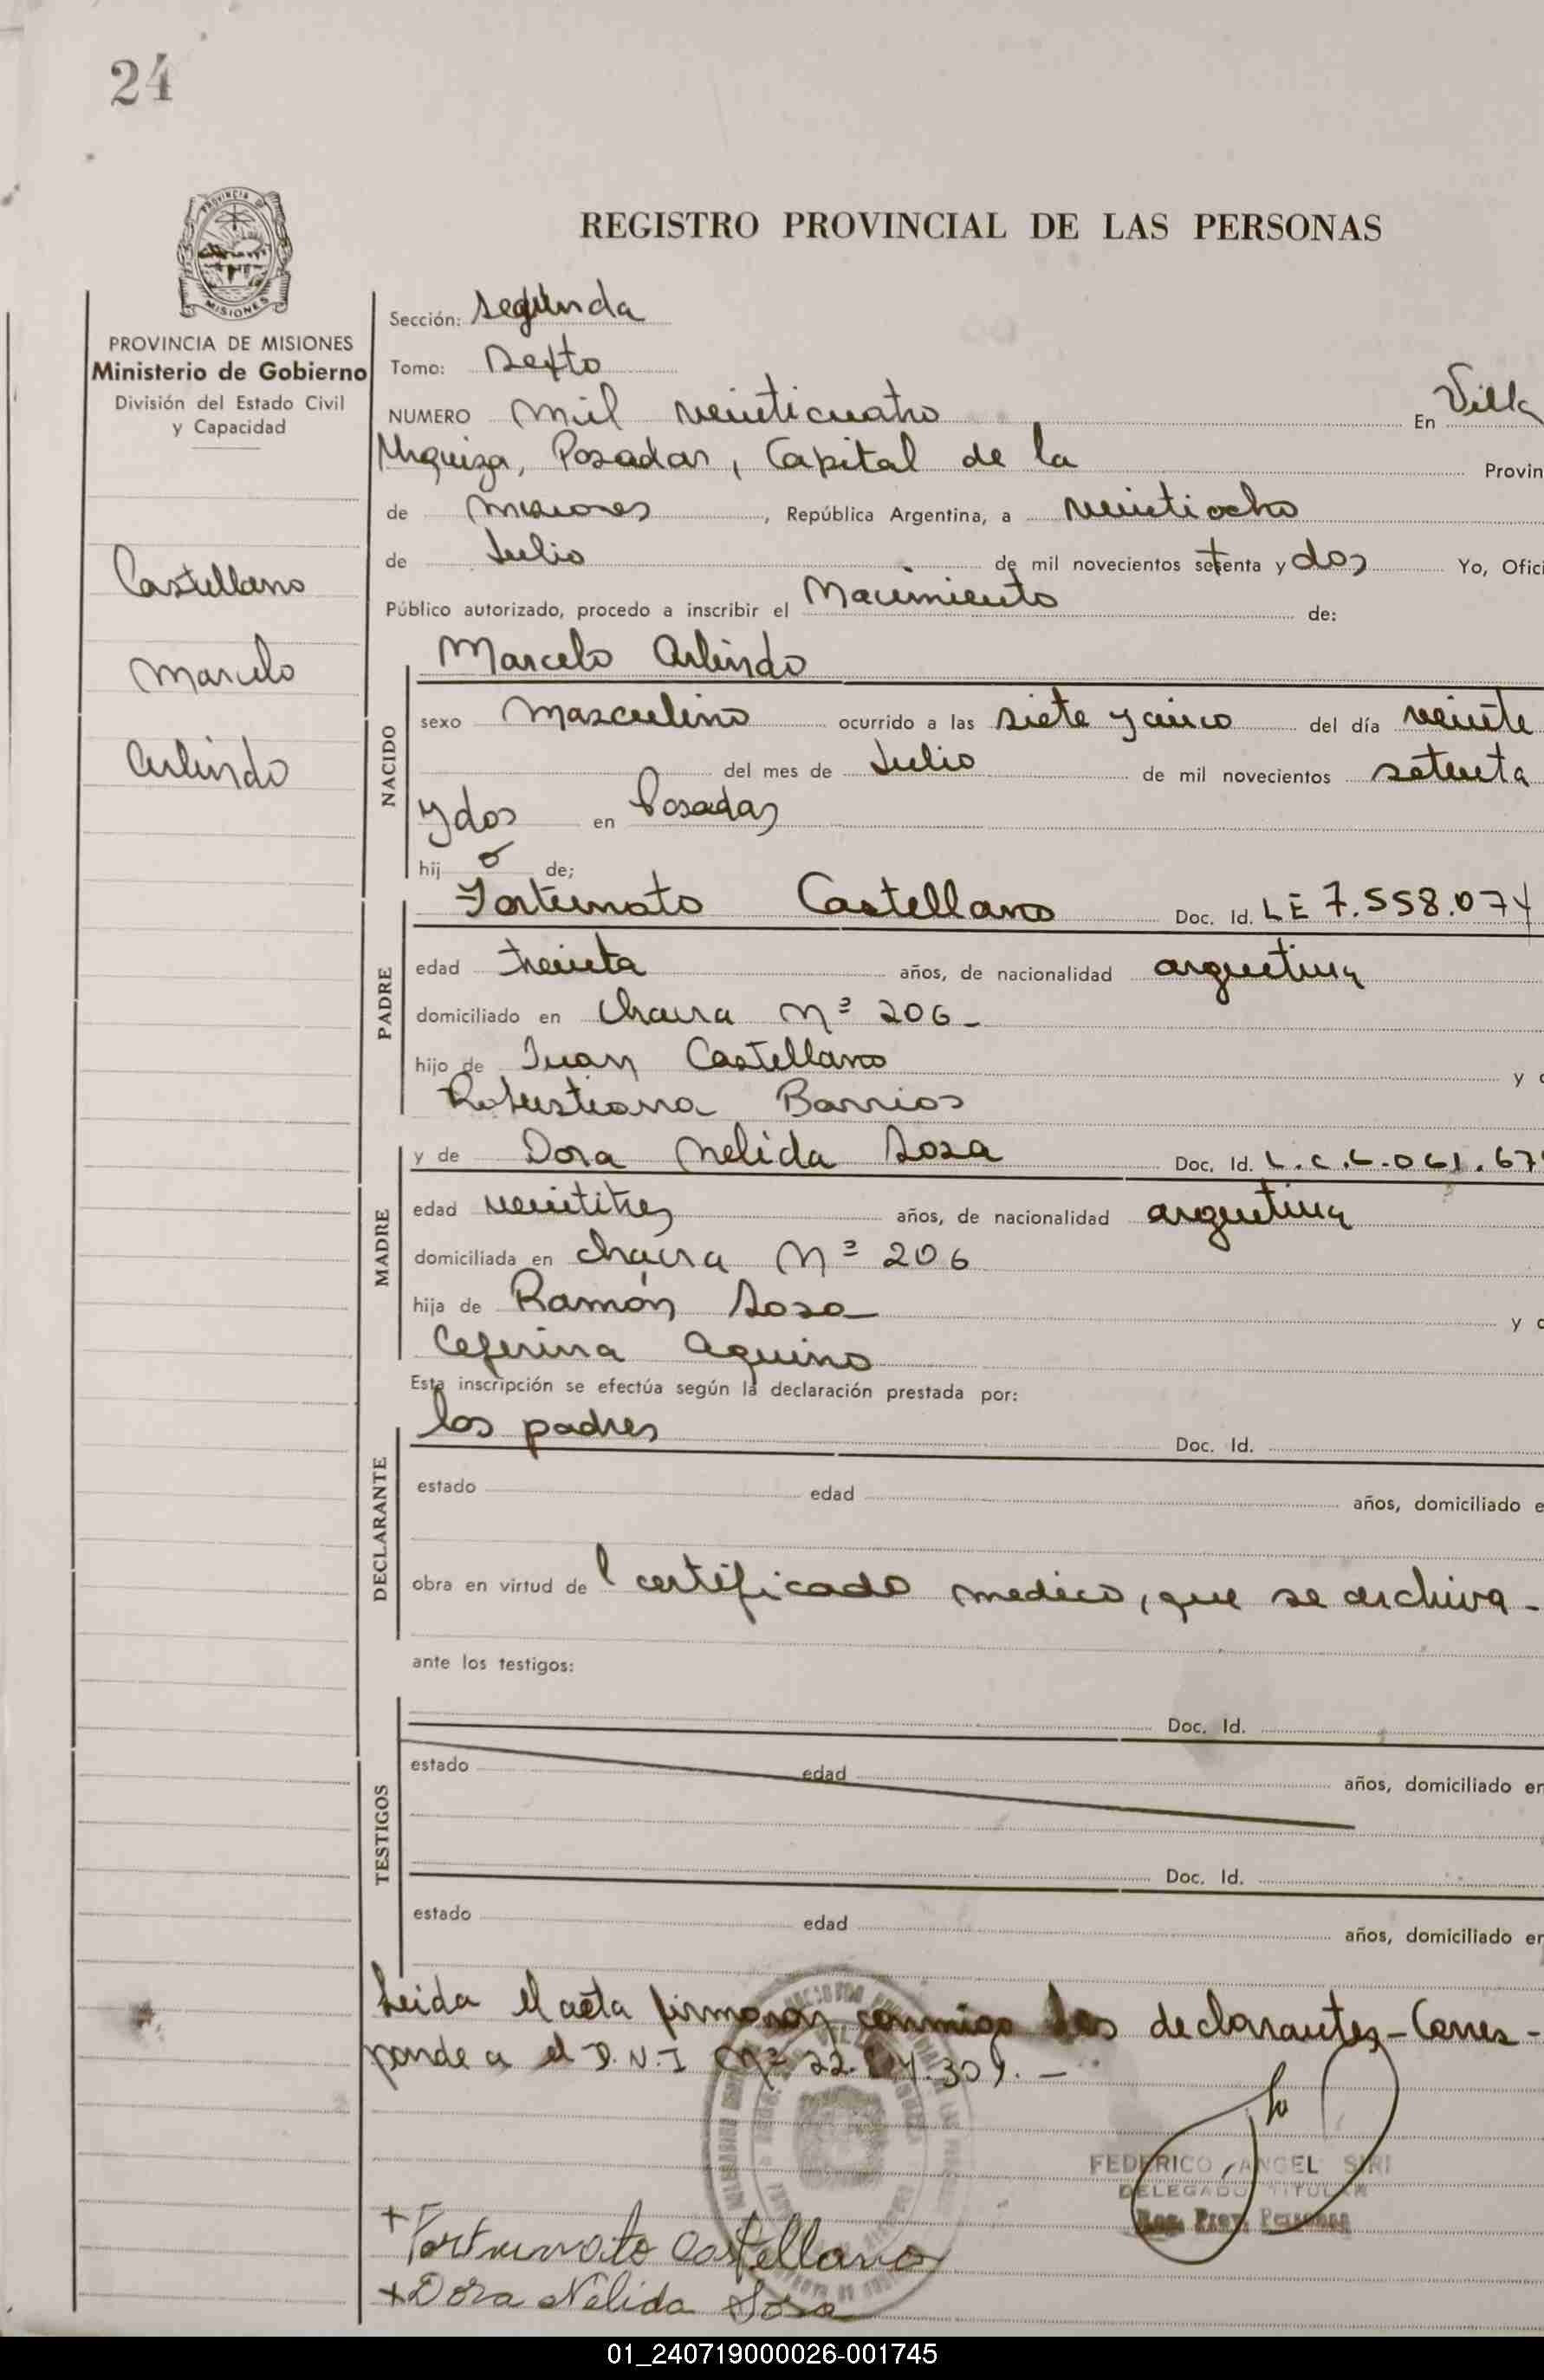 24
PROVINCIA DE
MISIONES
REGISTRO PROVINCIAL DE LAS PERSONAS
PROVINCIA DE MISIONES
Ministerio de Gobierno
División del Estado Civil
y Capacidad
Castellano
Marcelo
Arlindo
Sección: Segunda
Tomo: Sexto
NUMERO mil veinticuatro En Villa
Urquiza, Posadas, Capital de la Provin
de Misiones, República Argentina, a veintiocho
de Julio de mil novecientos setenta y dos Yo, Ofici
Público autorizado, procedo a inscribir el Nacimiento de:
NACIDO
Marcelo Arlindo
sexo Masculino ocurrido a las siete y cinco del día veinte
del mes de Julio de mil novecientos setenta
y dos en Posadas
hijo de;
PADRE
Fortunato Castellano Doc. Id. LE 7.558.074
edad treinta años, de nacionalidad argentina
domiciliado en Chacra Nº 206-
hijo de Juan Castellano y d
Robustiana Barrios
MADRE
y de Dora Nelida Sosa Doc. Id. L.C.6.061.67
edad veintitres años, de nacionalidad argentina
domiciliada en chacra Nº 206
hija de Ramón Sosa y d
Ceferina Aquino
Esta inscripción se efectúa según la declaración prestada por:
DECLARANTE
los padres Doc. Id.
estado edad años, domiciliado e
obra en virtud del certificado medico, que se archiva-
ante los testigos:
TESTIGOS
Doc. Id.
estado edad años, domiciliado en
Doc. Id.
estado edad años, domiciliado en
Leida el acta firmaron conmigo los declarantes-Corres-
ponde a el D.N.I Nº
FEDERICO ANGEL SIRI
DELEGADO TITULAR
Reg. Prov. Personas
+ Fortunato Castellano
+ Dora Nélida Sosa
01_240719000026-001745